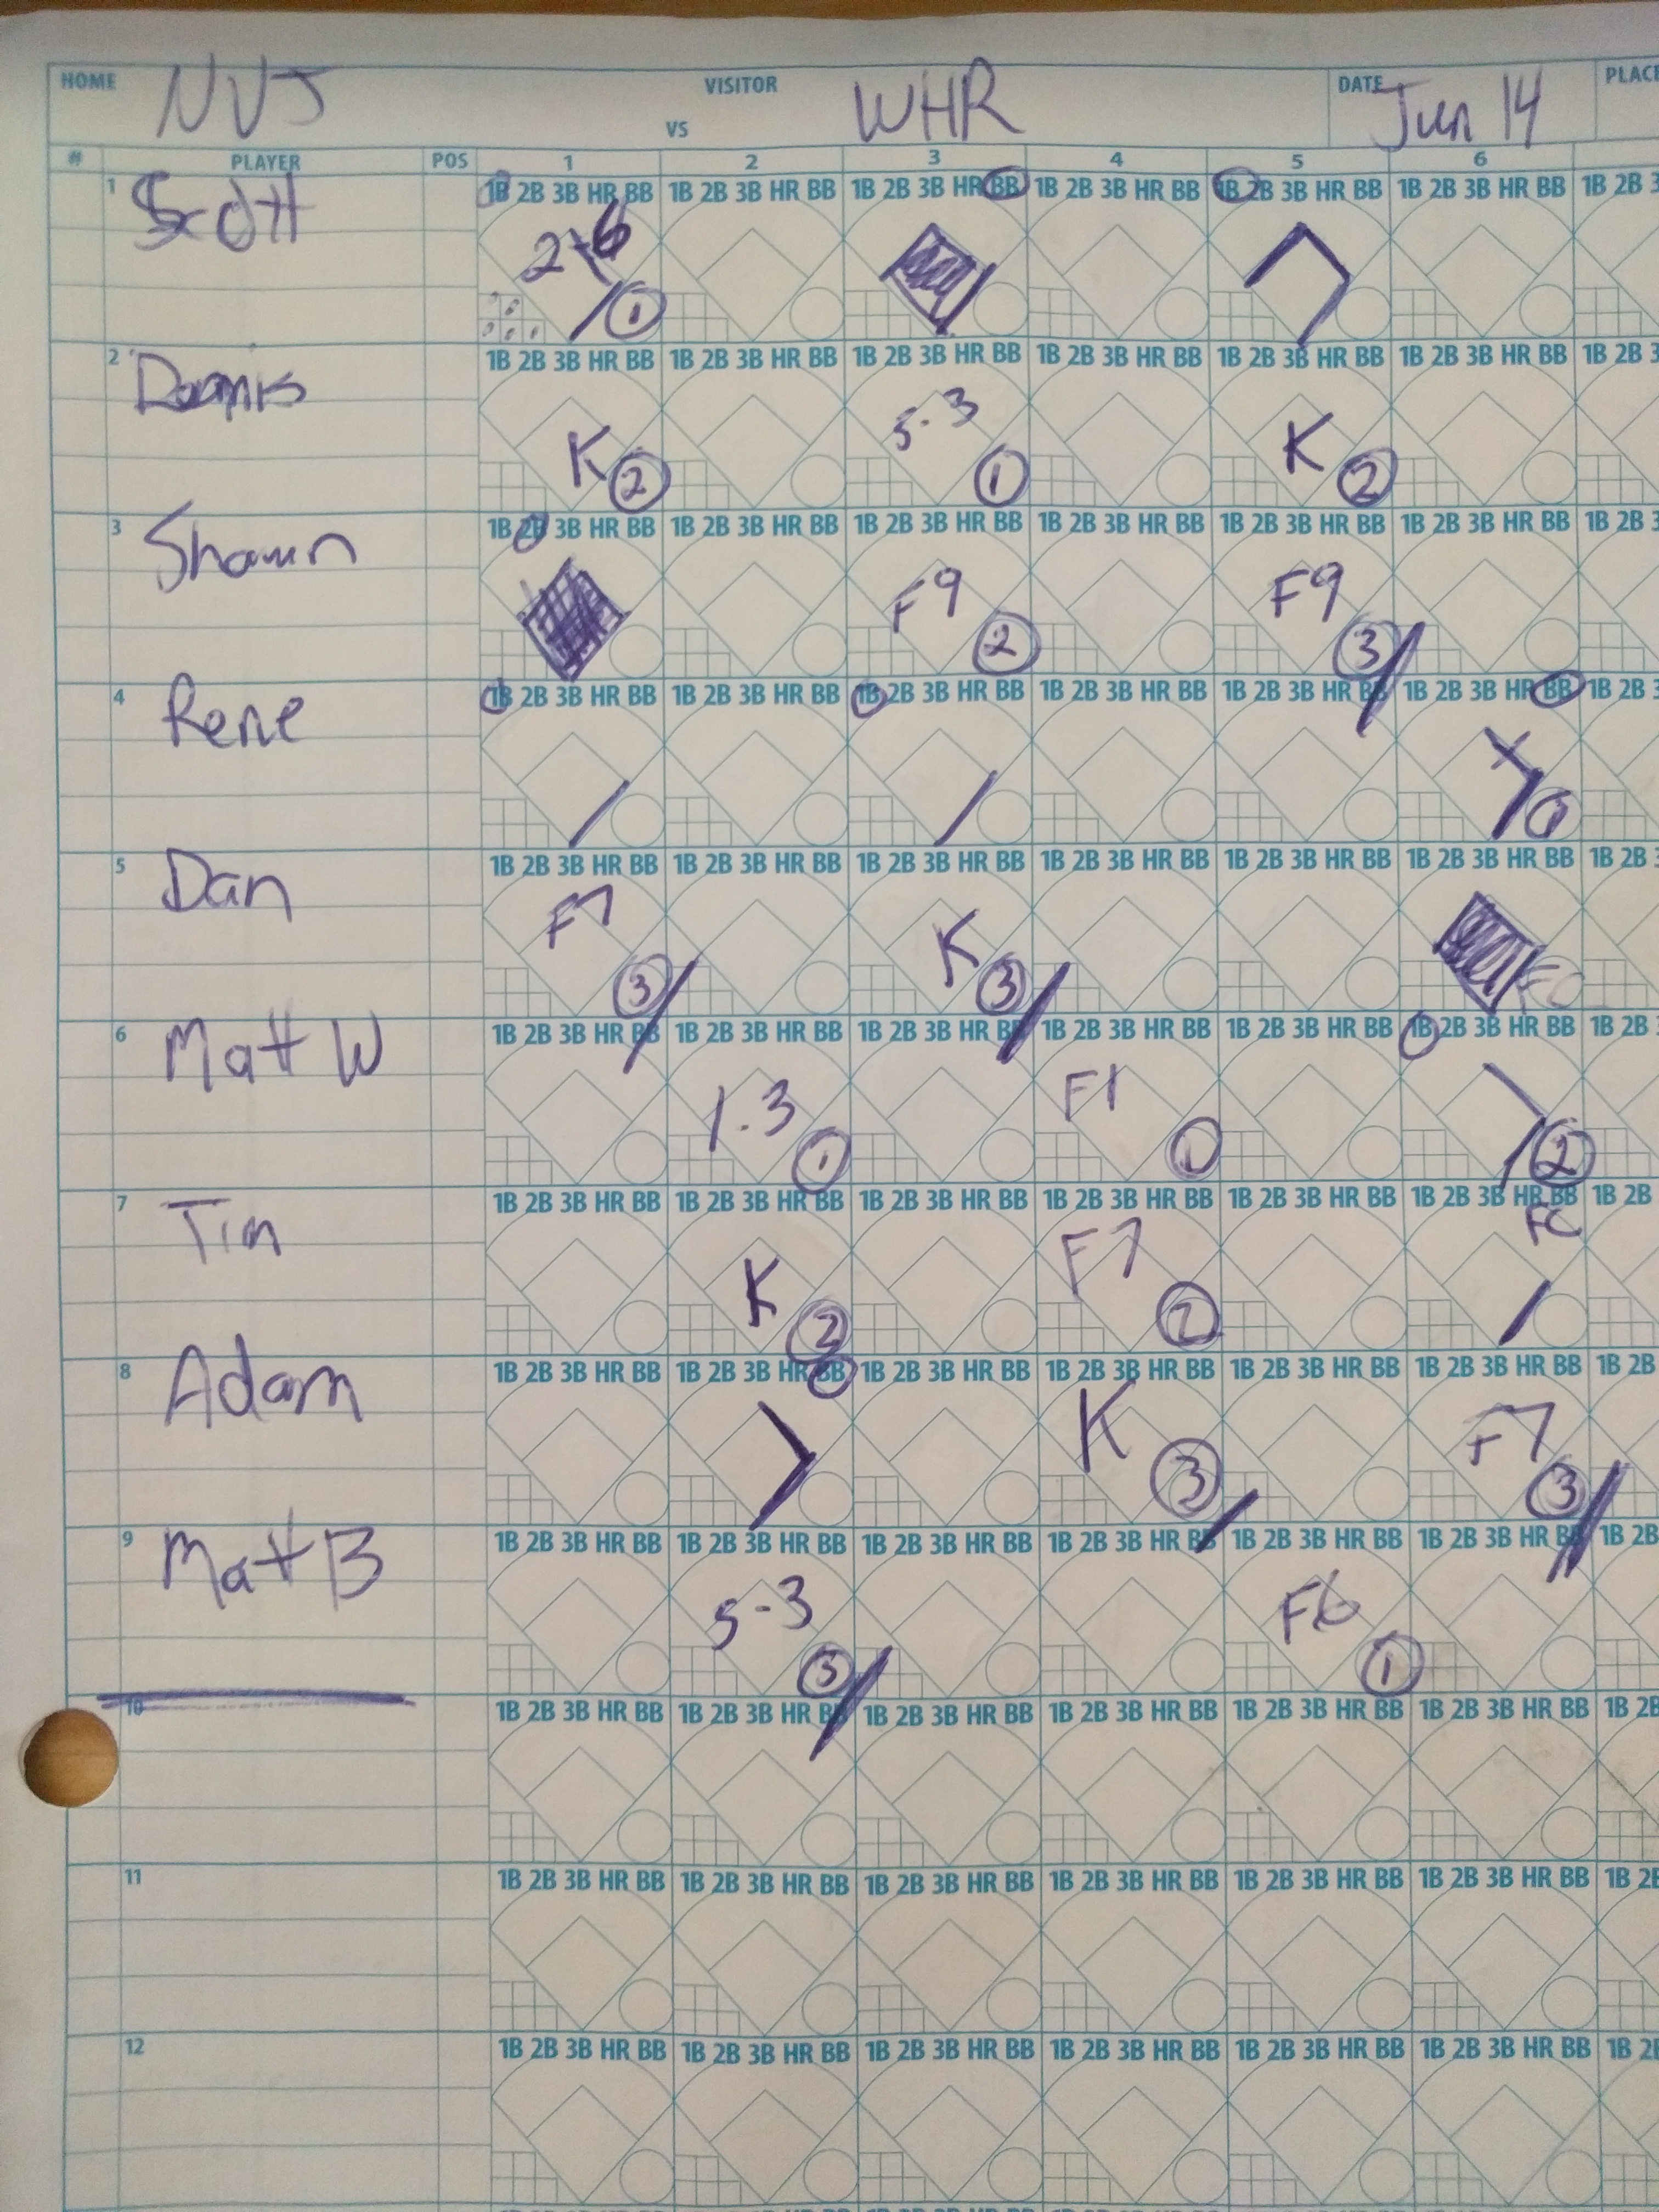 HOME NVJ VISITOR VS WHR DATE Jun 14 PLACE
# PLAYER POS 1 2 3 4 5 6
1 Scott 1B 2B 3B HR BB 1B 2B 3B HR BB 1B 2B 3B HR BB 1B 2B 3B HR BB 1B 2B 3B HR BB 1B 2B 3B HR BB 1B 2B 3
2-6 1
2 Dennis 1B 2B 3B HR BB 1B 2B 3B HR BB 1B 2B 3B HR BB 1B 2B 3B HR BB 1B 2B 3B HR BB 1B 2B 3B HR BB 1B 2B 3
K 2 5-3 1 K 2
3 Shawn 1B 2B 3B HR BB 1B 2B 3B HR BB 1B 2B 3B HR BB 1B 2B 3B HR BB 1B 2B 3B HR BB 1B 2B 3B HR BB 1B 2B 3
F9 2 F9 3
4 Rene 1B 2B 3B HR BB 1B 2B 3B HR BB 1B 2B 3B HR BB 1B 2B 3B HR BB 1B 2B 3B HR BB 1B 2B 3B HR BB 1B 2B 3
1
5 Dan 1B 2B 3B HR BB 1B 2B 3B HR BB 1B 2B 3B HR BB 1B 2B 3B HR BB 1B 2B 3B HR BB 1B 2B 3B HR BB 1B 2B 3
F7 3 K 3 FC
6 Matt W 1B 2B 3B HR BB 1B 2B 3B HR BB 1B 2B 3B HR BB 1B 2B 3B HR BB 1B 2B 3B HR BB 1B 2B 3B HR BB 1B 2B
1-3 1 F1 1 2
7 Tim 1B 2B 3B HR BB 1B 2B 3B HR BB 1B 2B 3B HR BB 1B 2B 3B HR BB 1B 2B 3B HR BB 1B 2B 3B HR BB 1B 2B
K 2 F7 2 FC
8 Adam 1B 2B 3B HR BB 1B 2B 3B HR BB 1B 2B 3B HR BB 1B 2B 3B HR BB 1B 2B 3B HR BB 1B 2B 3B HR BB 1B 2B
K 3 F7 3
9 Matt B 1B 2B 3B HR BB 1B 2B 3B HR BB 1B 2B 3B HR BB 1B 2B 3B HR BB 1B 2B 3B HR BB 1B 2B 3B HR BB 1B 2B
5-3 3 F6 1
10 1B 2B 3B HR BB 1B 2B 3B HR BB 1B 2B 3B HR BB 1B 2B 3B HR BB 1B 2B 3B HR BB 1B 2B 3B HR BB 1B 2B
11 1B 2B 3B HR BB 1B 2B 3B HR BB 1B 2B 3B HR BB 1B 2B 3B HR BB 1B 2B 3B HR BB 1B 2B 3B HR BB 1B 2B
12 1B 2B 3B HR BB 1B 2B 3B HR BB 1B 2B 3B HR BB 1B 2B 3B HR BB 1B 2B 3B HR BB 1B 2B 3B HR BB 1B 2B